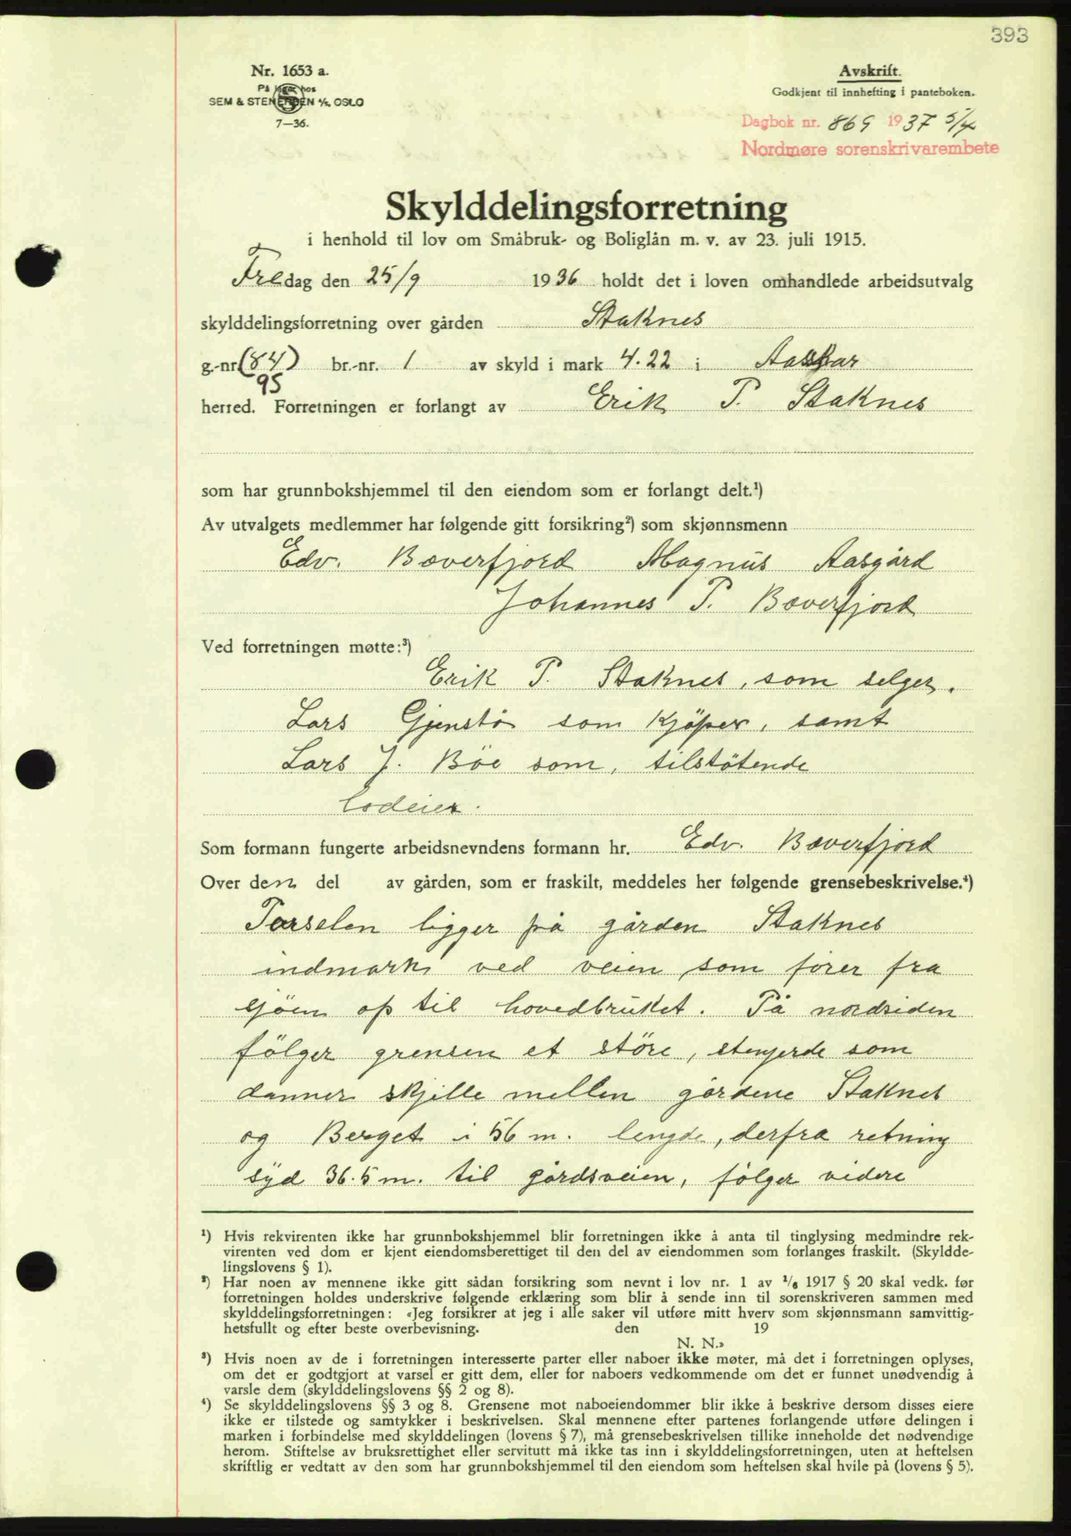 393
Nr. 1653 a.
På lager hos
SEM & STENERSEN A/S, OSLO
7—36.
Avskrift.
Godkjent til innhefting i panteboken.
Dagbok nr. 869 1937 5/4
Nordmøre sorenskrivarembete
Skylddelingsforretning
i henhold til lov om Småbruk- og Boliglån m. v. av 23. juli 1915.
Fredag den 25/9 1936 holdt det i loven omhandlede arbeidsutvalg
skylddelingsforretning over gården Staknes
g.-nr. (84) br.-nr. 1 av skyld i mark 4.22 i Aasskar
95
herred. Forretningen er forlangt av Erik P. Staknes
som har grunnbokshjemmel til den eiendom som er forlangt delt.¹)
Av utvalgets medlemmer har følgende gitt forsikring²) som skjønnsmenn
Edv. Bæverfjord Magnus Aasgård
Johannes P. Bæverfjord
Ved forretningen møtte:³)
Erik P. Staknes, som selger.
Lars Gjenstö som kjöper, samt
Lars J. Böe som, tilstötende
lodeier.
Som formann fungerte arbeidsnevndens formann hr. Edv. Bæverfjord
Over den del av gården, som er fraskilt, meddeles her følgende grensebeskrivelse.⁴)
Parselen ligger på gården Staknes
indmark ved veien som förer fra
sjöen op til hovedbruket. På nordsiden
fölger grensen et störe, stengjerde som
danner skjille mellen gårdene Staknes
og Berget i 56 m. lengde, derfra retning
syd 36.5 m. til gårdsveien, fölger videre
¹) Hvis rekvirenten ikke har grunnbokshjemmel blir forretningen ikke å anta til tinglysing medmindre rek-
virenten ved dom er kjent eiendomsberettiget til den del av eiendommen som forlanges fraskilt. (Skyldde-
lingslovens § 1).
²) Har noen av mennene ikke gitt sådan forsikring som nevnt i lov nr. 1 av 1/6 1917 § 20 skal vedk. før
forretningen holdes underskrive følgende erklæring som blir å sende inn til sorenskriveren sammen med
skylddelingsforretningen: «Jeg forsikrer at jeg i alle saker vil utføre mitt hverv som skjønnsmann samvittig-
hetsfullt og efter beste overbevisning. den 19
N. N.»
³) Hvis noen av de i forretningen interesserte parter eller naboer ikke møter, må det i forretningen oplyses,
om det er godtgjort at varsel er gitt dem, eller for naboers vedkommende om det er funnet unødvendig å
varsle dem (skylddelingslovens §§ 2 og 8).
⁴) Se skylddelingslovens §§ 3 og 8. Grensene mot naboeiendommer blir ikke å beskrive dersom disses eiere
ikke er tilstede og samtykker i beskrivelsen. Skal mennene efter partenes forlangende utføre delingen i
marken i forbindelse med skylddelingen (lovens § 7), må grensebeskrivelsen tillike inneholde det nødvendige
herom. Stiftelse av bruksrettighet eller servitutt må ikke tas inn i skylddelingsforretningen, uten at heftelsen
skriftlig er vedtatt av den som har grunnbokshjemmel til den eiendom som heftelsen skal hvile på (lovens § 5).